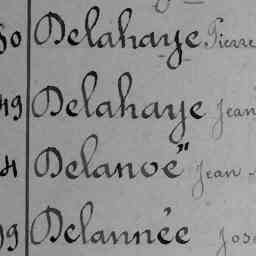 50 Delahaye Pierre
49 Delahaye Jean
Delanoë Jean
Delannée